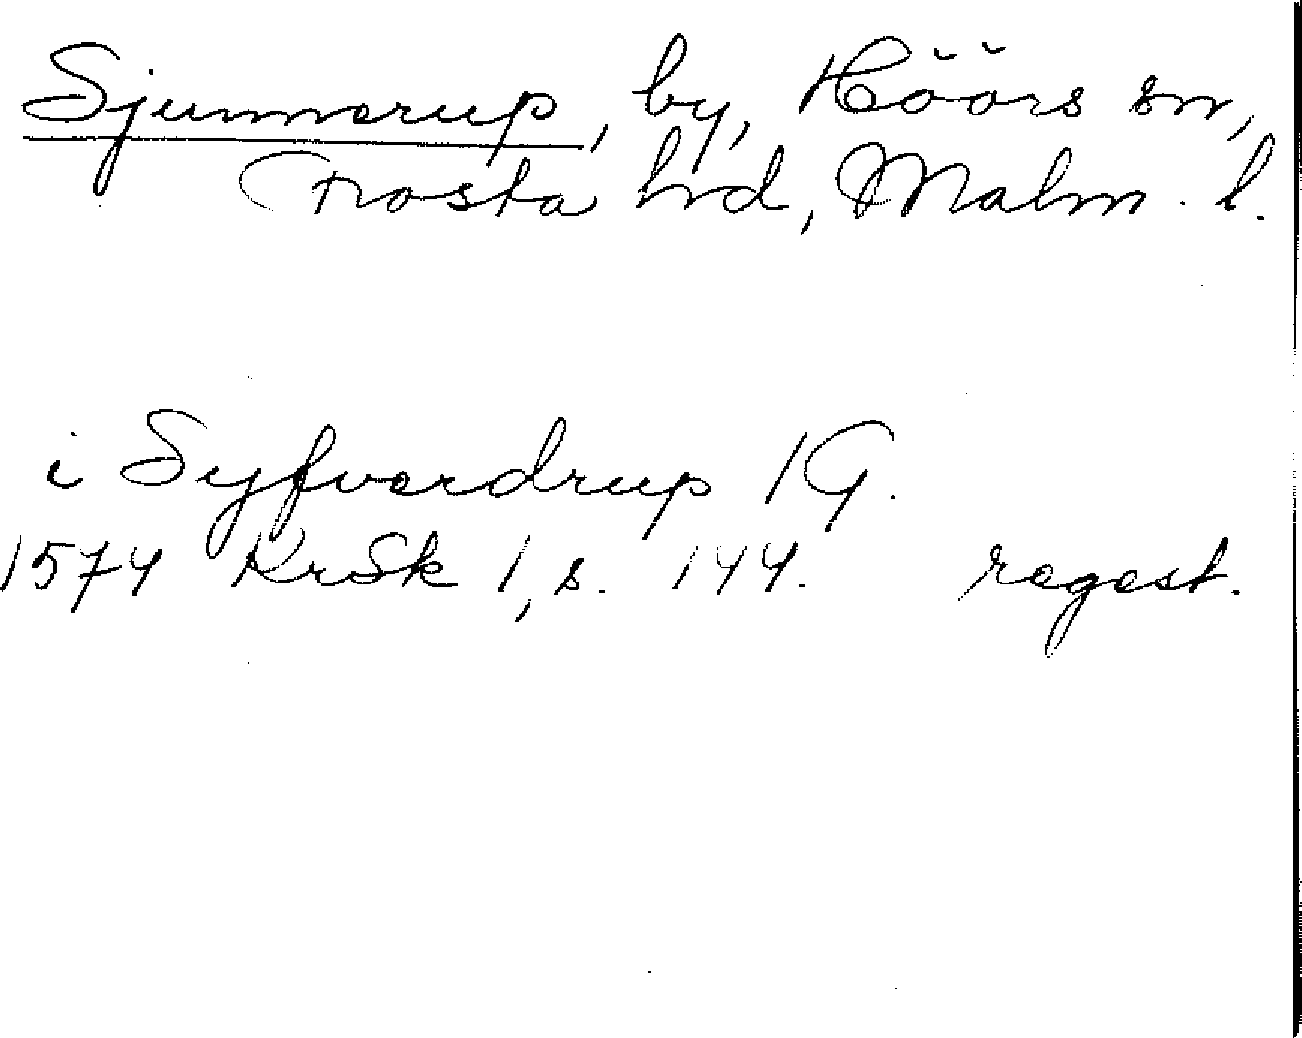 Sjunnerup, by, Höörs sn,
Frosta hrd, Malm. l.
i Syfverdrup 1G.
1574 KrSk 1, s. 144. regest.